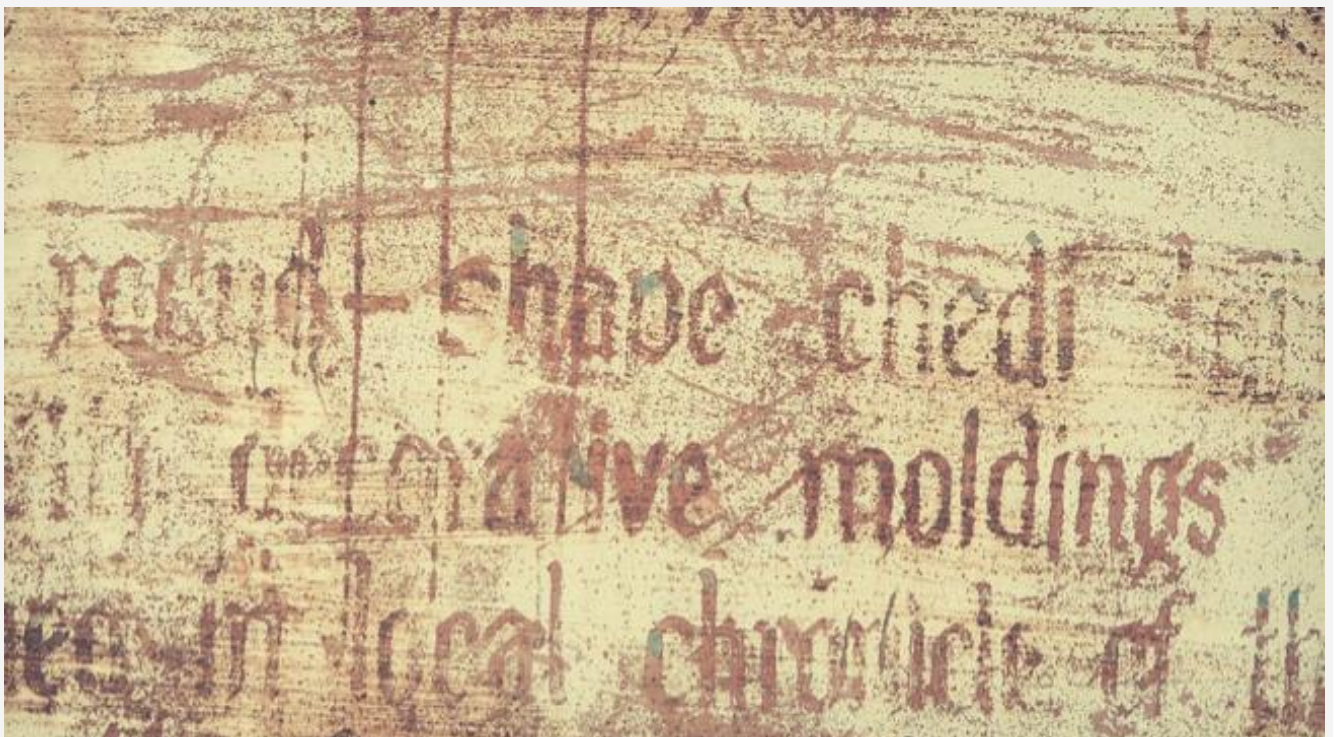 round-shape chedi
decorative moldings
in local chronicle of